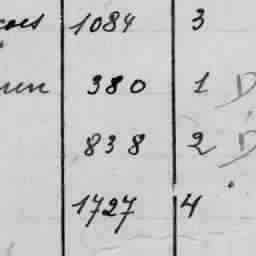 1084 3
380 1 D
838 2 D
1727 4